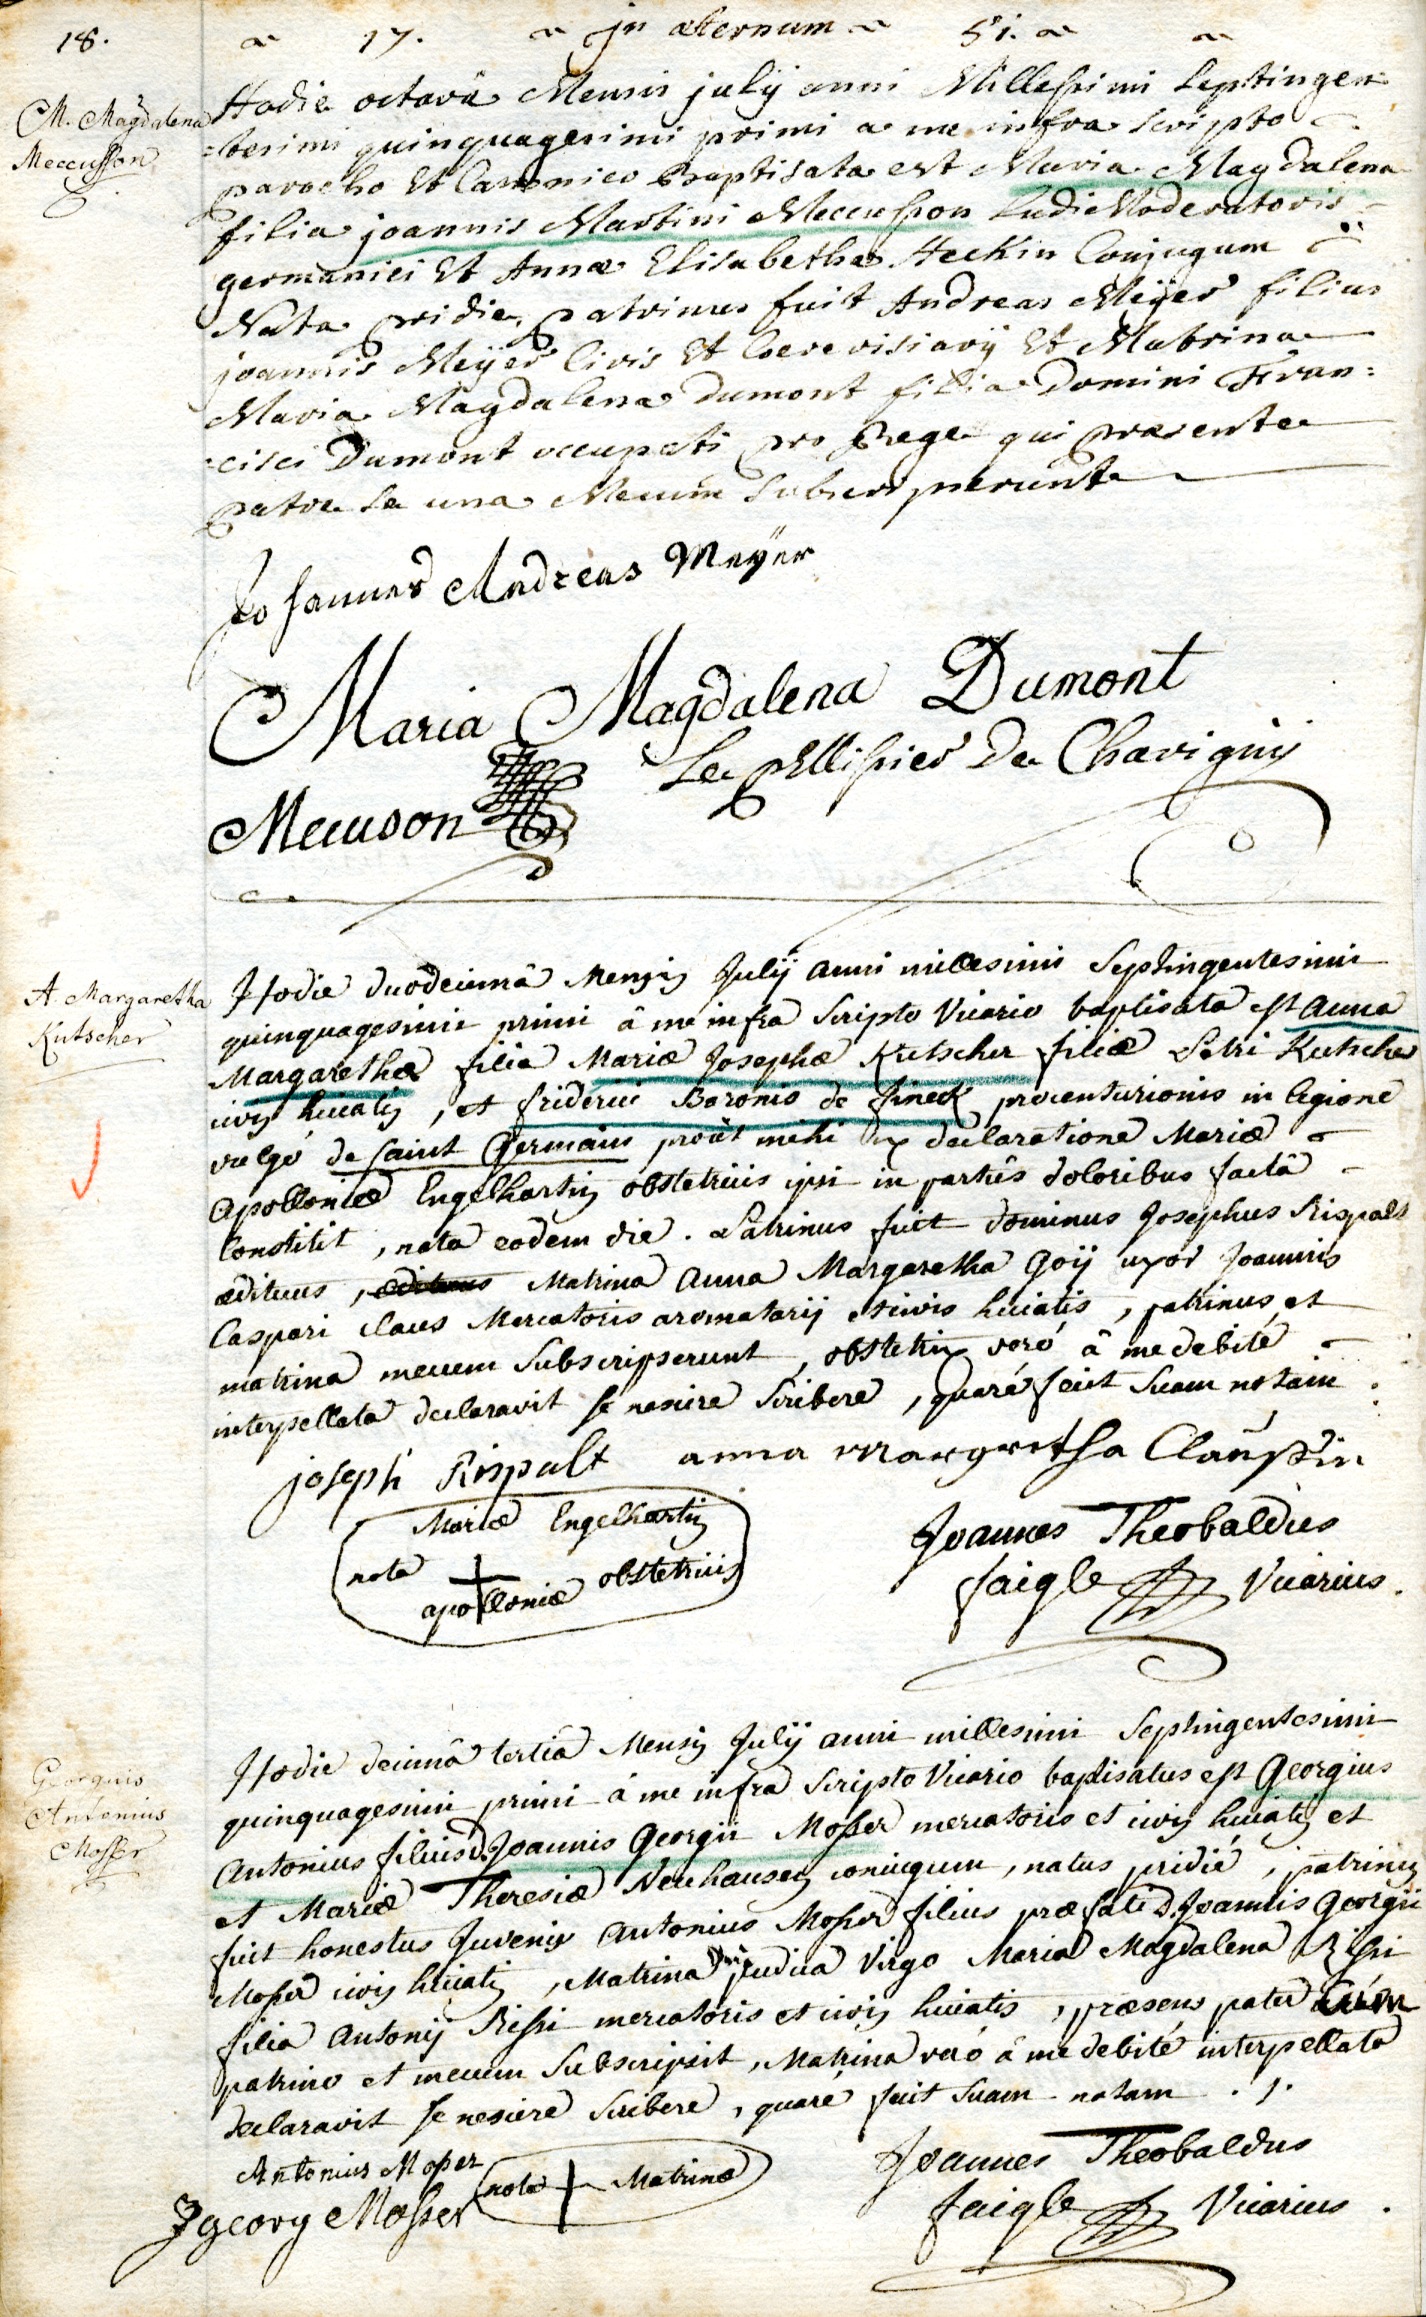 18. 17. jn æternum 51.
M. Magdalena
Meccusson
Hodie octavâ Mensis julij anni Millessimi Septingen
=tesimi quinquagesimi primi a me infra scripto
parocho Et Canonico Baptisata est Maria Magdalena
filia joannis Martini Meccusson Ludi Moderatoris
germanici Et Annæ Elisabethæ Heckin Conjugum
Nata pridie, patrinus fuit Andreas Meÿer filius
joannis Meÿer Civis Et Cerevisiarij Et Matrina
Maria Magdalena Dumont filia Domini Fran=
=cisci Dumont occupati pro Rege qui præsente
patre se una Mecum Subscripserunt
Johannes Andreas Meÿer
Maria Magdalena Dumont
Le pellissier De Chavigny
Mecuson
A. Margaretha
Kutscher
Hodie duodecimâ Mensis Julij anni millesimi Septingentesimi
quinquagesimi primi â me infra Scripto Vicario baptisata est anna
Margaretha filia Mariæ Josephæ Kutscher filiæ Petri Kutscher
civis huiatis, et friderici Baronis de fineck procenturionis in legione
vulgó de saint Germain proùt mihi ex declaratione Mariæ
Apolloniæ Engelhartin obstetricis ipsi in partûs doloribus factâ
Constitit, nata eodem die. Patrinus fuit dominus Josephus Rispalt
ædituus, ædituus Matrina Anna Margaretha Goij uxor Joannis
Caspari Claus Mercatoris aromatarij et civis huiatis, patrinus et
matrina mecum Subscripserunt, obstetrix veró â me debité
interpellata declaravit se nescire scribere, quaré fecit suam notam.
joseph Rispalt anna margretha Claußin
Mariæ Engelhartin
nota + obstetricis
apolloniæ
Joannes Theobaldus
faigle Vicarius.
Georgius
Antonius
Mosser
Hodie decimâ tertiâ Mensis Julij anni millesimi Septingentesimi
quinquagesimi primi â me infra Scripto Vicario baptisatus est Georgius
Antonius filius D. Joannis Georgii Mosser mercatoris et civis huiatis et
et Mariæ Theresiæ Neuhauser coniugum, natus pridié, patrinus
fuit honestus Juvenis Antonius Mosser filius præfati D. Joannis Georgii
Mosser civis huiatis, Matrina pudica Virgo Maria Magdalena Rissi
filia Antonij Rissi mercatoris et civis huiatis, præsens pater cum
patrino et mecum Subscripsit, Matrina veró â me debité interpellata
declaravit se nescire scribere, quaré fecit suam notam ./.
Antonius Mosser
nota + Matrinæ
J georg Mosser
Joannes Theobaldus
faigle Vicarius.